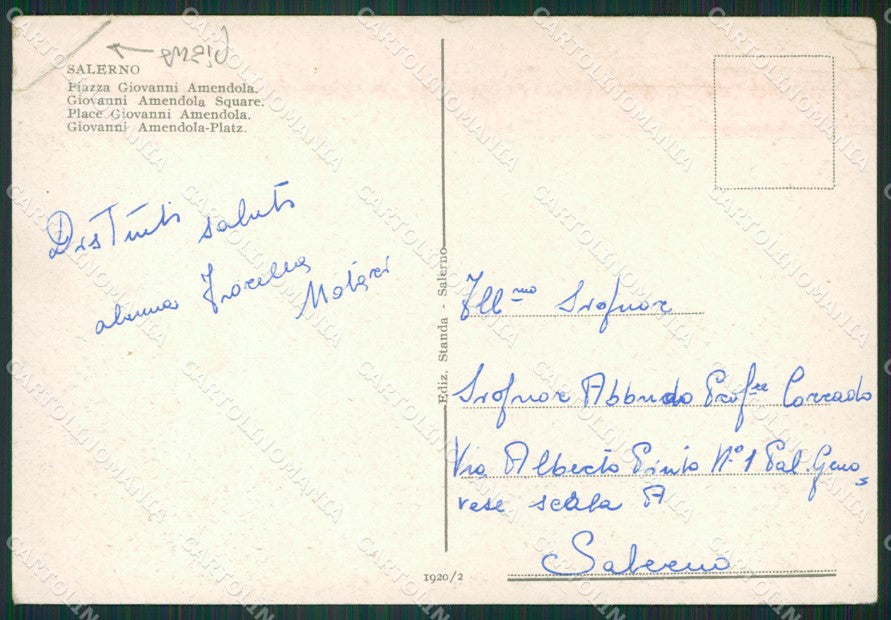 piega
SALERNO
Piazza Giovanni Amendola.
Giovanni Amendola Square.
Place Giovanni Amendola.
Giovanni Amendola-Platz.
Distinti saluti
alunna Fiorella
Notari
Ediz. Standa - Salerno
Ill.mo Signor
Signor Abbundo Prof.re Corrado
Via Alberto Pinto N.º 1 Pal. Geno
vese scala A
Salerno
1920/2
CARTOLINOMANIA